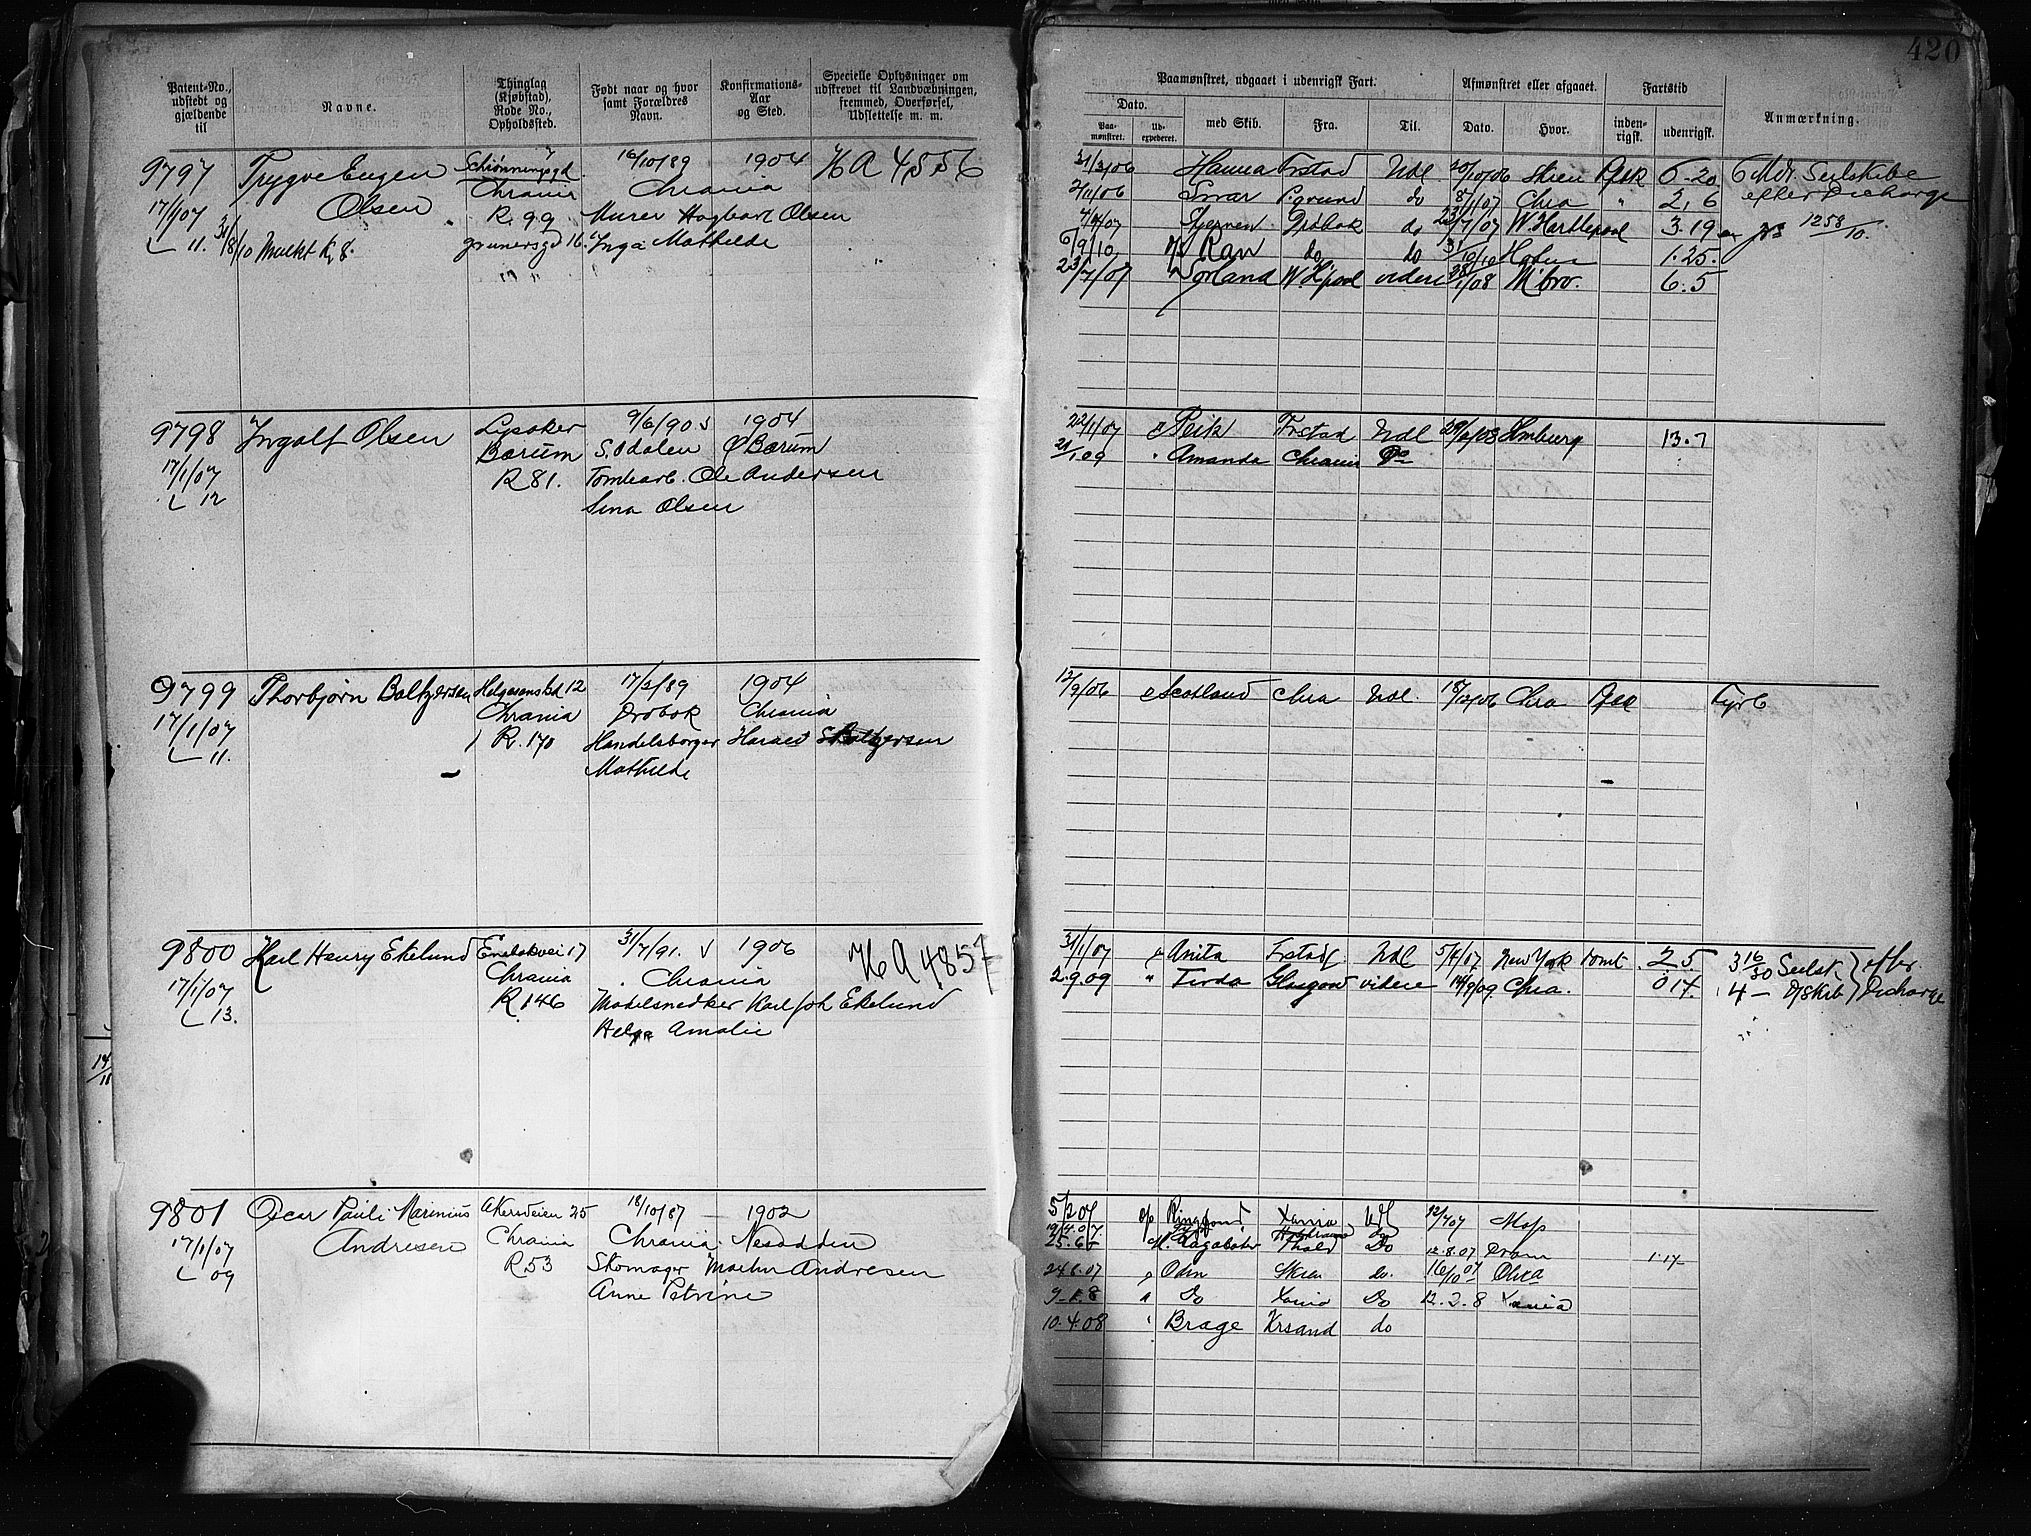 420
Patent-No., udstedt og gjældende til
Navne.
Thinglag (Kjøbstad), Rode No., Opholdssted.
Født naar og hvor samt Forældres Navn.
Konfirmations-Aar og Sted.
Specielle Oplysninger om udskrevet til Landværnningen, fremmed, Overførsel, Udslettelse m. m.
Paamønstret, udgaaet i udenrigsk Fart.
Dato.
Paamønstret.
med Skib.
Fra.
Til.
Afmønstret eller afgaaet.
Dato.
Hvor.
Fartstid
indenrigsk.
udenrigsk.
Anmærkning.
9797 Trygve Eugen Schiønningsgd. 16/10/89 1904 HA 4556
Olsen Chrania Chrania
17/1/07 R. 99 Murer Hagbart Olsen
L 11. 31/8/10 Mulkt Kr 8. grunersgd 16. Inga Mathilde
31/3/06 Hanna Frstad Udl. 20/10/06 Skien 6-20 6 Mdr. Seilskibe
2/11/06 Svar P.grund do 8/1/07 Chra " 2,6 efter Discharge
4/4/07 Stjernen Drøbak do 23/7/07 W. Hartlepool 3.19 1258/10.
6/9/10 Ran do do 31/10/10 1.25.
23/7/07 Norland W. H'pool videre 28/1/08 M'bro. 6.5
9798 Ingolf Olsen Lysaker 9/6/90 1904
17/1/07 Bærum S. Odalen Ø Bærum
L 12 R 81. Tomtearb. Ole Andersen
Lina Olsen
22/1/07 Reik Frstad Udl 13.7
21/1 09 " Amanda Chrania Do
9799 Thorbjørn Baltzersen 17/2/89 1904
17/1/07 Chrania Drøbak Chrania
L 11. R. 170 Handelsborger Harald Baltzersen
Mathilde
12/9/06 Scotland Chra Udl. 18/12/06 Chra Fyrb
9800 Karl Henry Ekelund 17 31/7/91. 1906 HA 4857
17/1/07 Chrania Chrania
L 13. R 146 Møbelsnedker Karl Joh Ekelund
Helga Amalie
31/1/07 Anita Frstad Udl 5/4/07 New York tømt 2.5. 3 16/30 Seilsk. efter
2.9.09 " Glasgow videre 14/9/09 Chra. 0 14. 4 - D/skib Discharge
9801 Oscar Pauli Marinius Akersveien 25 18/10/87 1902
Andresen Chrania Chrania Nesodden
17/1/07 R 53 Skomager Martin Andresen
L 09 Anne Petrine
5/2 07 Ringfond Xania Udl 12/7 07 Mop
19/4.07.
25.6 - Thald Do 12.8.07 Dram 1.17
24.8.07 " Odin Skien do. 16/10 07 Chra
9.1.8 " Do Xania Do 12.2.8 Xania
10.4.08 " Brage Krsand do
14/11